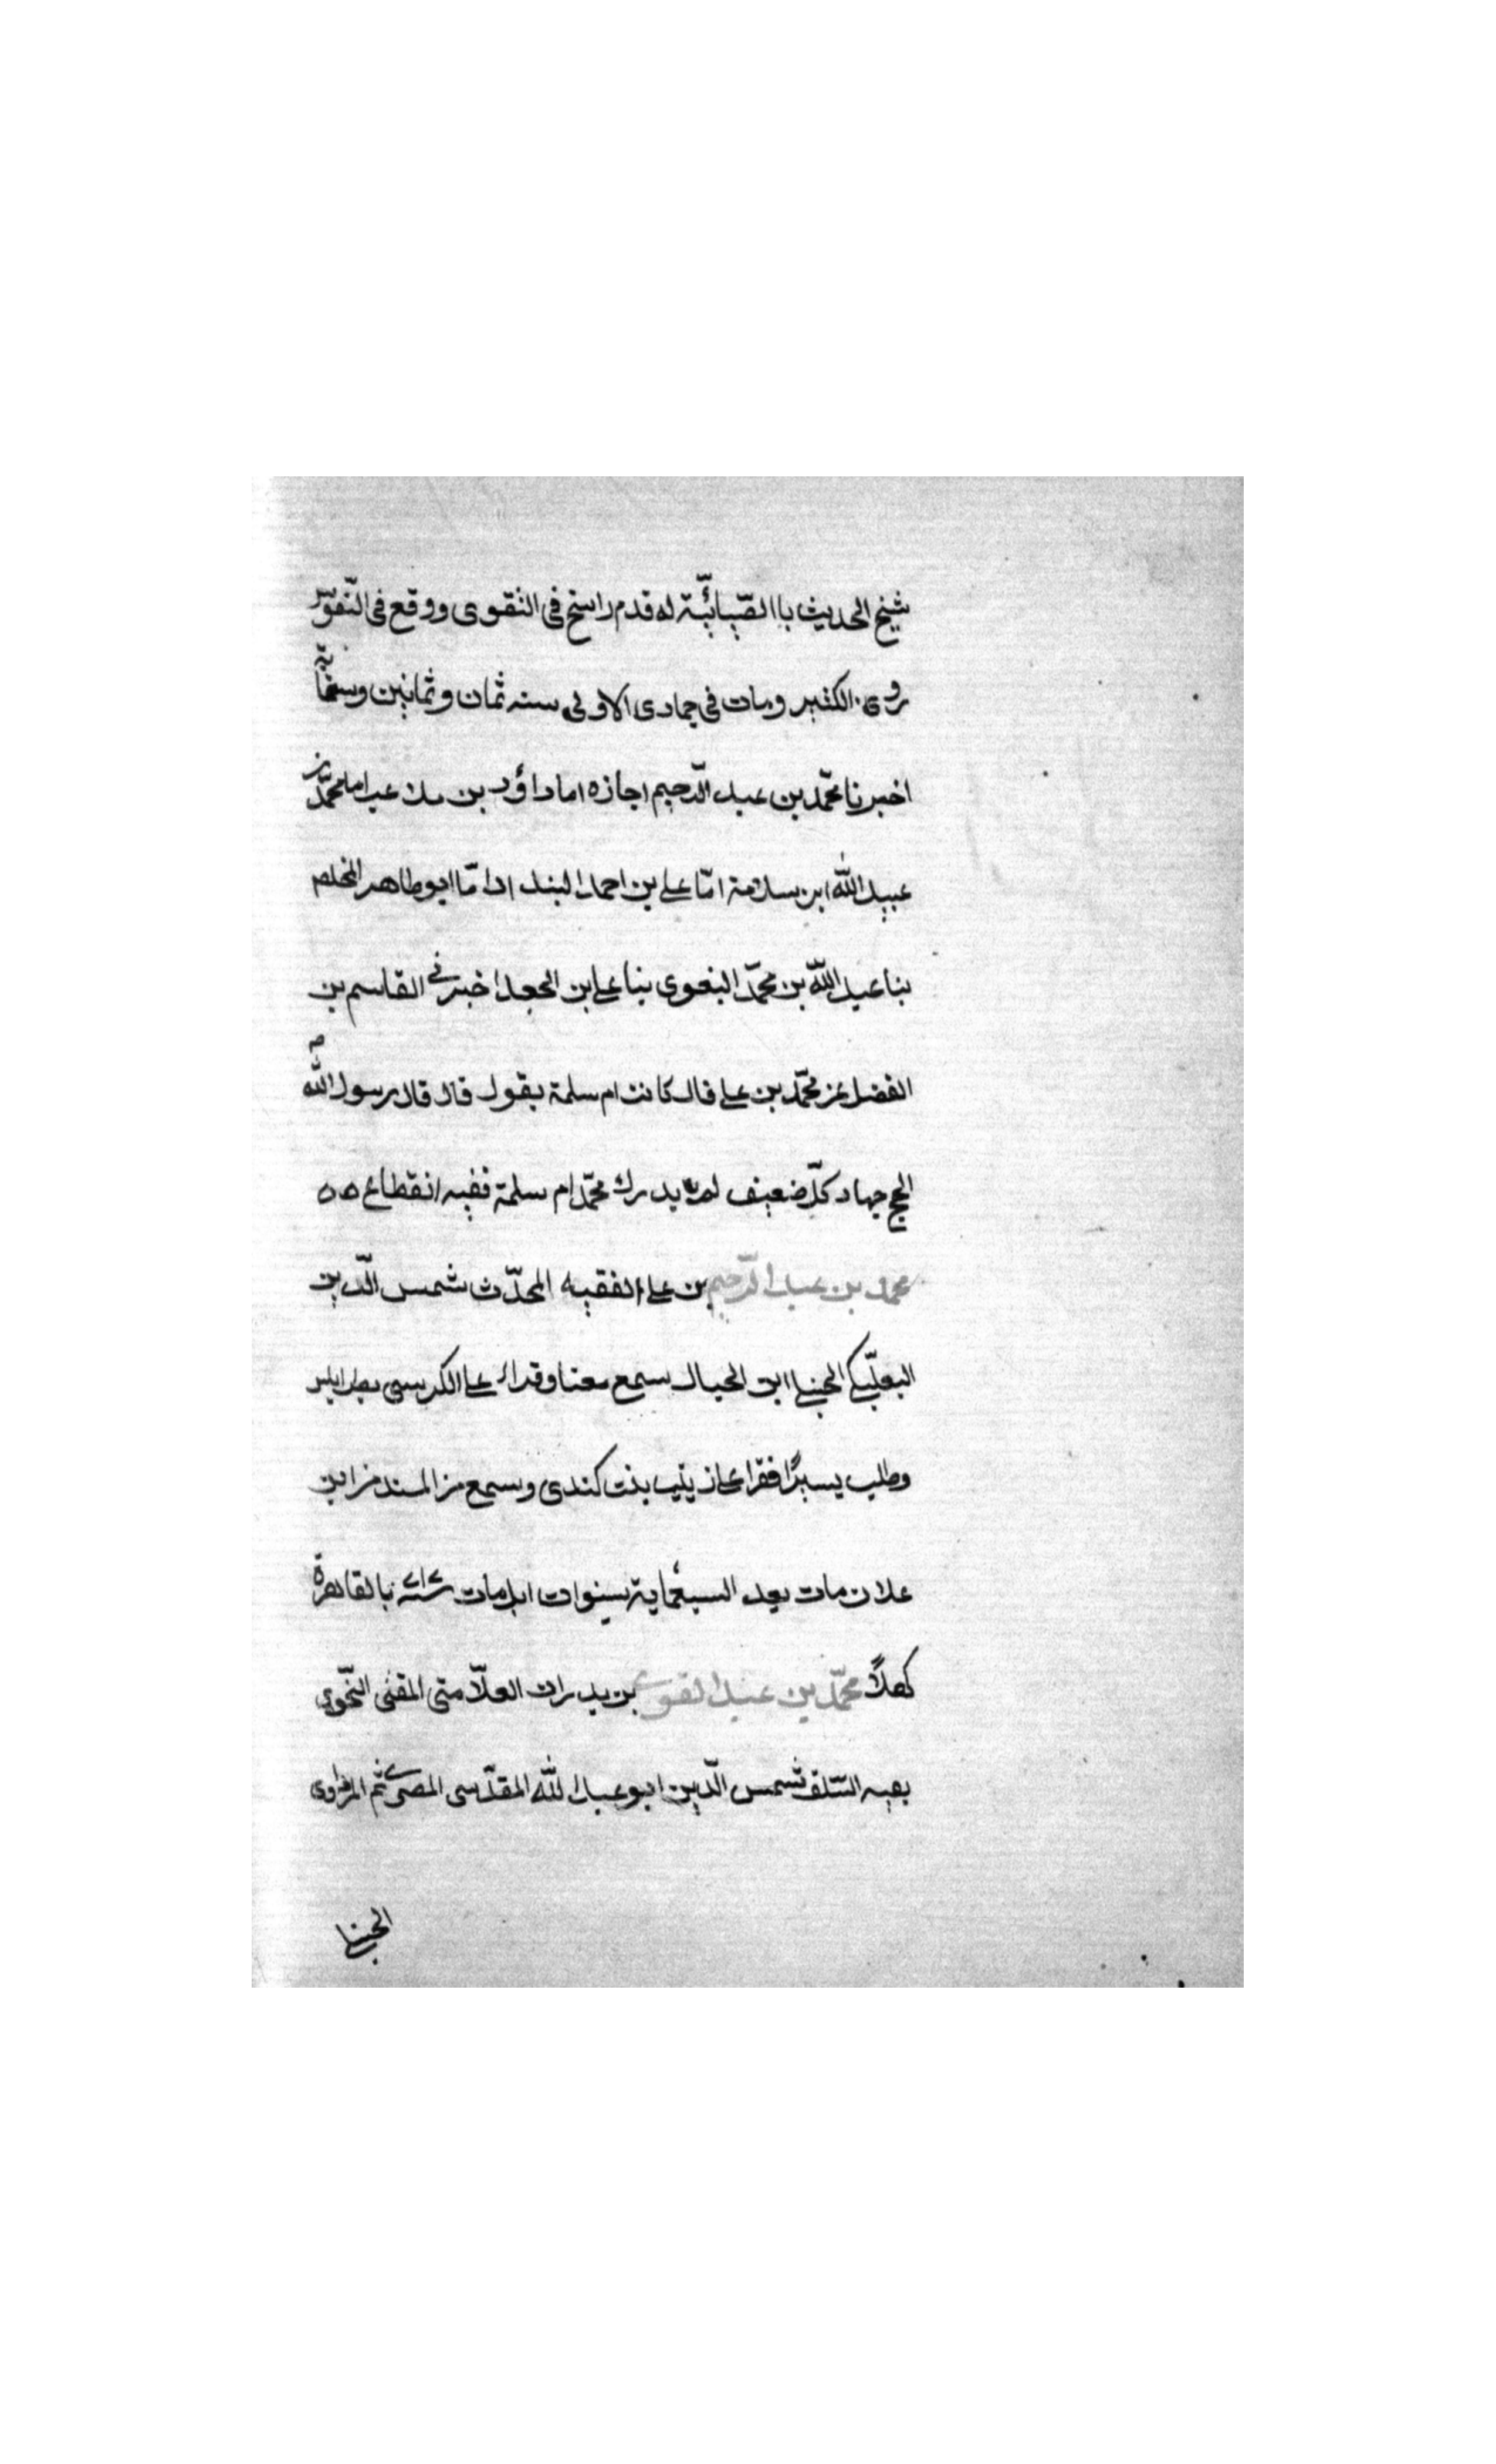 شيخ الحديث باالضيائية له قدم راسخ في التقوى ووقع في النفوس
روى الكثير ومات في جمادى الاولى سنه ثمان وثمانين وستمائة
اخبرنا محمّد بن عبد الرّحيم اجازه اما داؤد بن ملاعب اما محمّد بن
عبيد الله ابن سلامة امّا علي بن احمد البندار امّا ابو طاهر المخلص
بنا عبد الله بن محمّد البغوى بنا علي بن الجعد اخبرني القاسم بن
الفضل عن محمّد بن علي قال كانت ام سلمة يقول قال قال رسول الله ص
الحج جهاد كلّ ضعيف لم يدرك محمّد ام سلمة ففيه انقطاع ٥٥
محمد بن عبد الرّحيم بن علي الفقيه المحدّث شمس الدّين
البعلبّكي الحنبلي ابن الحبال سمع معنا وقراء على الكرسي بطرابلس
وطلب يسيرًا فقرا على زينب بنت كندى وسمع من المسند من ابن
علان مات بعد السبعماية بسنوات ابل مات بالقاهرة
كهلاً محمّد بن عبد القوى بن بدران العلّامتى المفتى النّحوى
بقيه السّلف شمس الدّين ابو عبد الله المقدّسى المصرى ثم المرداوى
الحنبلي